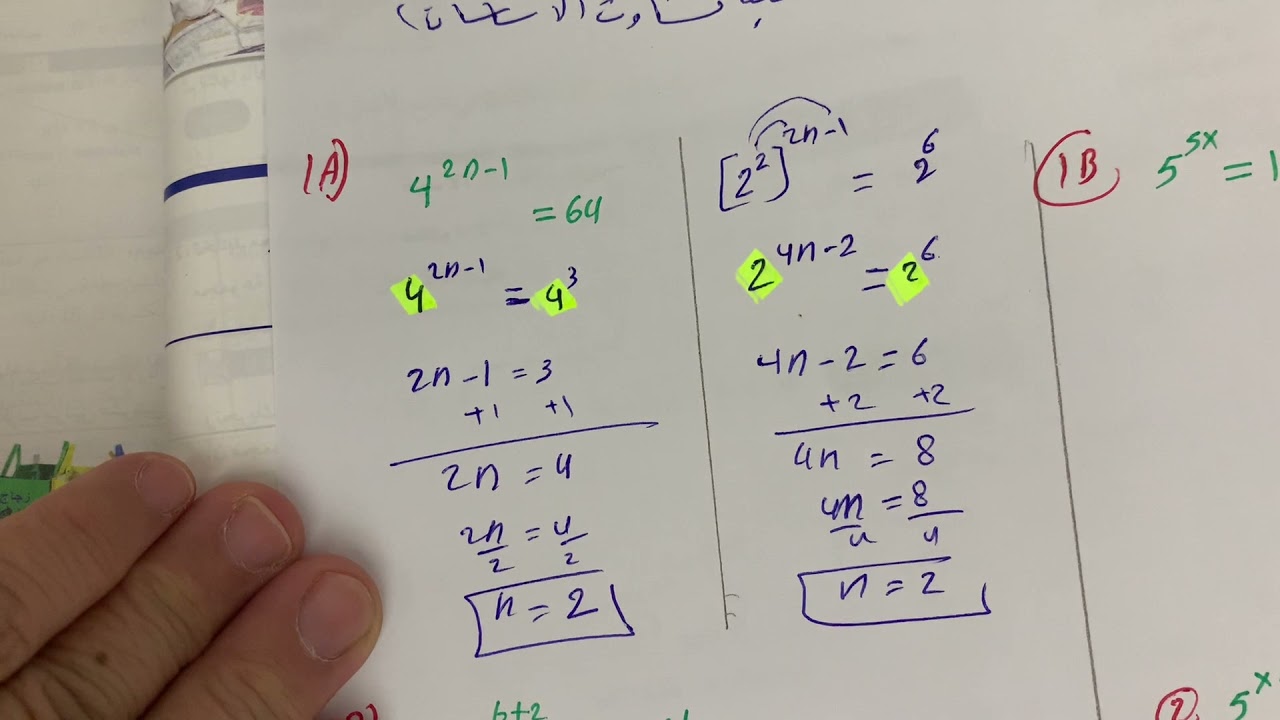 1A)
4^{2n-1}
= 64
4^{2n-1} = 4^3
2n - 1 = 3
+1 +1
2n = 4
2n/2 = 4/2
n = 2
[2^2]^{2n-1} = 2^6
2^{4n-2} = 2^6
4n - 2 = 6
+2 +2
4n = 8
4n/4 = 8/4
n = 2
1B
5^{5x} = 1
6+2
2 5^x